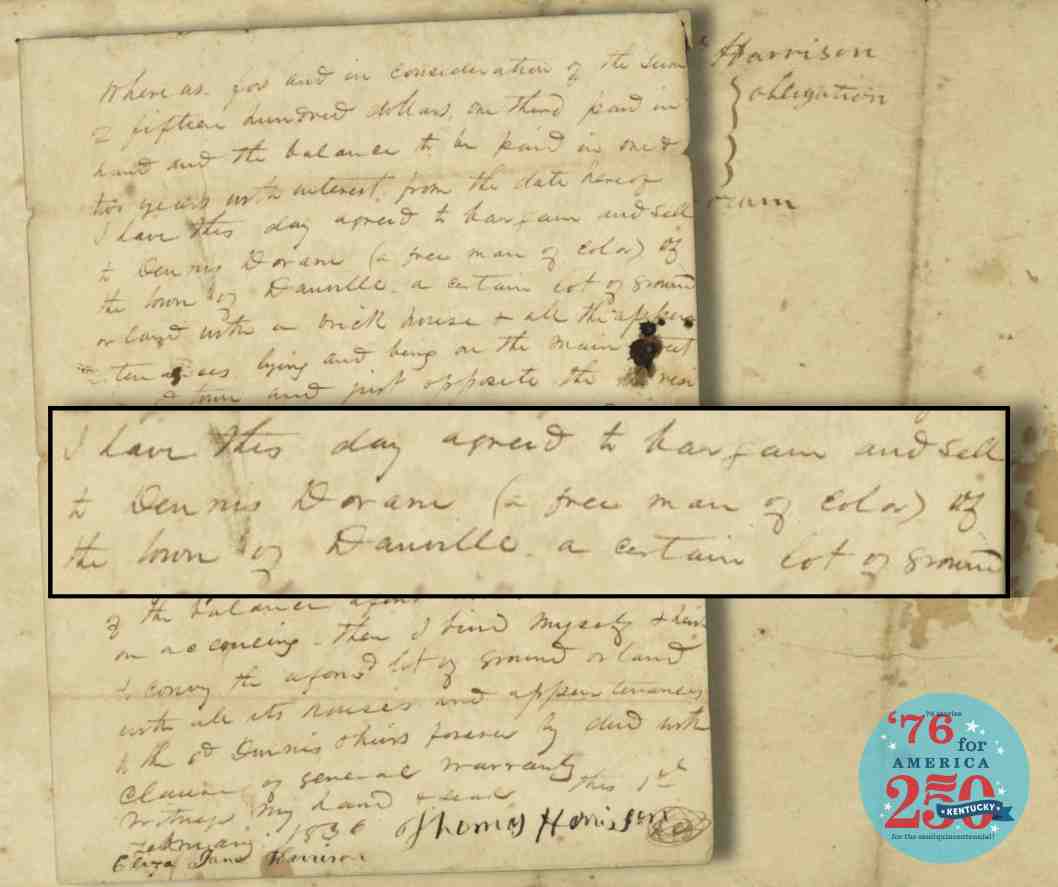 Where as for and in consideration of the sum
of fifteen hundred dollars, one third paid in
hand and the balance to be paid in one &
two years with interest from the date hereof
I have this day agreed to bargain and sell
to Dennis Doram (a free man of color) of
the town of Danville a certain lot of ground
or land with a brick house & all the appur
tenances lying and being on the main street
town and just opposite the
I have this day agreed to bargain and sell
to Dennis Doram (a free man of color) of
the town of Danville a certain lot of ground
of the balance
on accruing then I bind myself & heirs
to convey the aforesd lot of ground or land
with all its houses and appurtenances
to the sd Dennis & heirs forever by deed with
clause of general warranty
witness my hand & seal this 1st
1836 Thomas Harrison
Eliza Jane Harrison
Harrison
obligation
oram
'76
for
AMERICA
250
KENTUCKY
for the semiquincentennial!